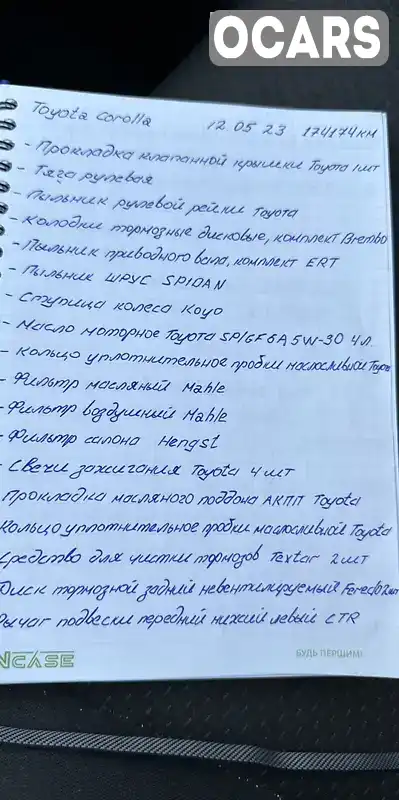 OCARS
Toyota Corolla 12 05 23 174174 км
- Прокладка клапанной крышки Toyota 1 шт
- Тяга рулевая
- Пыльник рулевой рейки Toyota
- Колодки тормозные дисковые, комплект Brembo
- Пыльник приводного вала, комплект ERT
- Пыльник ШРУС SPIDAN
- Ступица колеса Koyo
- Масло моторное Toyota SP/GF6A 5W-30 4 л.
- Кольцо уплотнительное пробки маслосливной Toyota
- Фильтр масляный Mahle
- Фильтр воздушный Mahle
- Фильтр салона Hengst
- Свечи зажигания Toyota 4 шт
Прокладка масляного поддона АКПП Toyota
Кольцо уплотнительное пробки маслосливной Toyota
Средство для чистки тормозов Textar 2 шт
Диск тормозной задний невентилируемый 2 шт
Рычаг подвески передний нижний левый CTR
NCASE БУДЬ ПЕРШИМ!